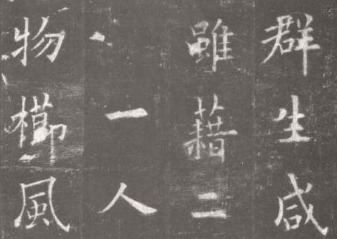 群生咸
雖藉二
一人
物櫛風